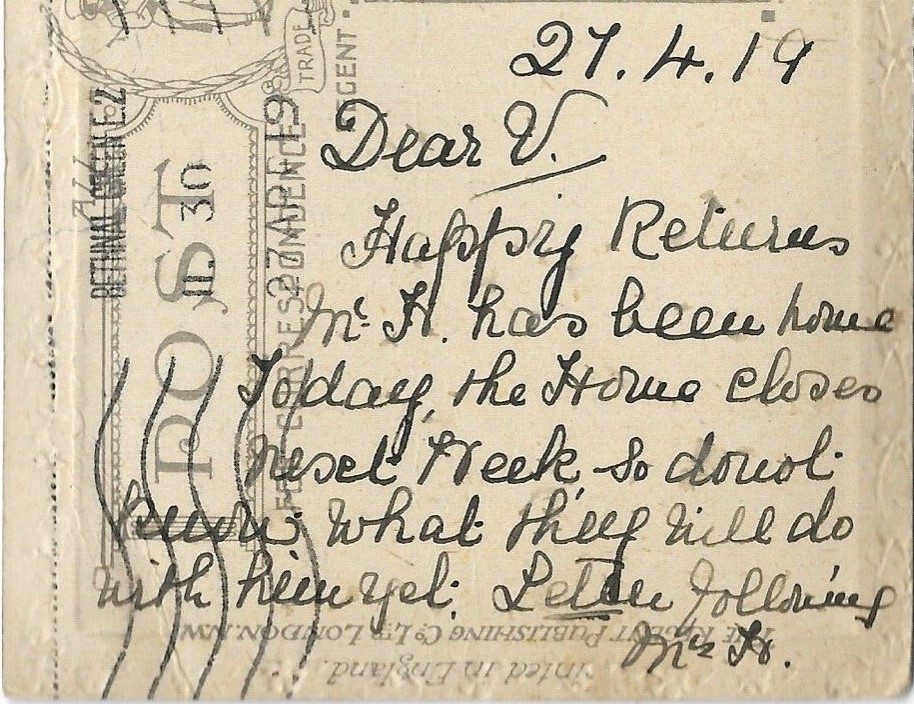 27.4.19
Dear V.
Happy Returns
Mr H. has been home
Today, the Home closes
next Week so donot
know what they will do
with him yet. Letter following
Mrs H.
BETHNAL GREEN E.2
11. 30
27 APR 19
POST
FOR CORRESPONDENCE
TRADE
REGENT
THE REGENT PUBLISHING CO LTD LONDON. N.W.
inted in England.